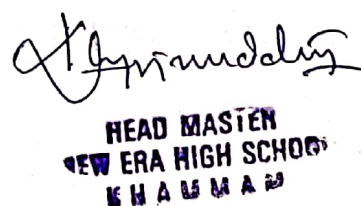 HEAD MASTER
NEW ERA HIGH SCHOOL
KHAMMAM